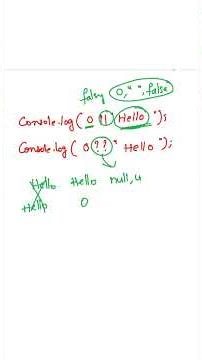 falsy 0, " ", false
Console.log( 0 || "Hello ");
Console.log( 0 ?? " Hello ");
Hello Hello null, u
Hello 0